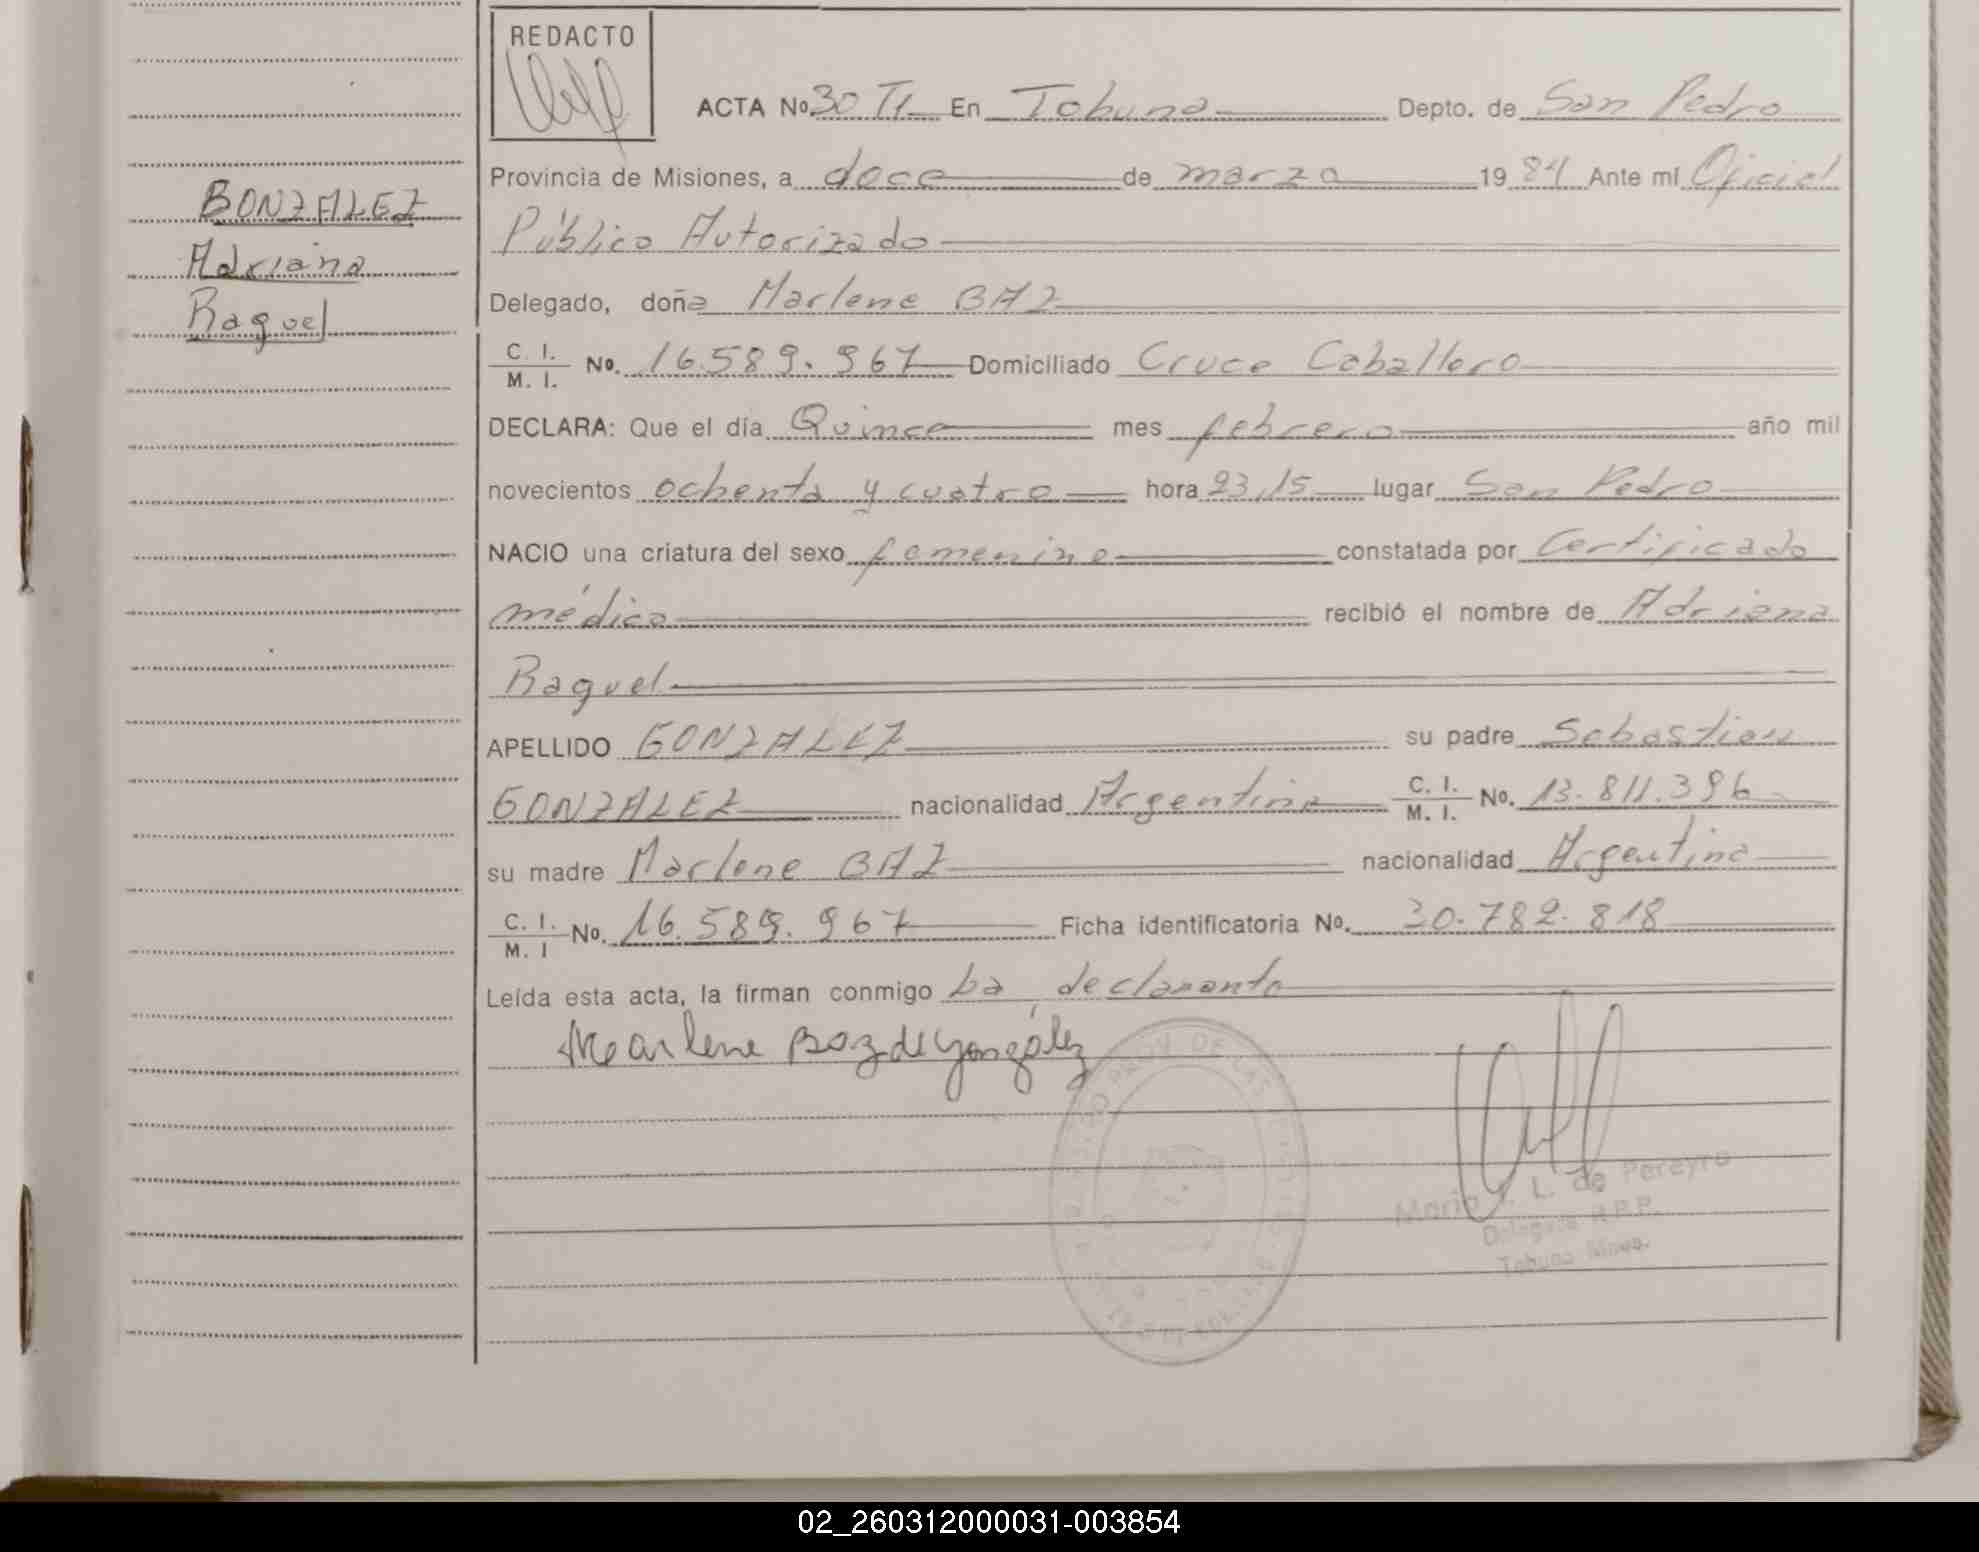 REDACTO
ACTA No 30 T1 En Tobuna Depto. de San Pedro
Provincia de Misiones, a doce de marzo 19 84 Ante mí Oficial
Público Autorizado
BONZALEZ
Adriana
Raquel
Delegado, doña Marlene BAZ
C. I. M. I. No. 16.589.967 Domiciliado Cruce Caballero
DECLARA: Que el día Quince mes febrero año mil
novecientos ochenta y cuatro hora 23,15 lugar San Pedro
NACIO una criatura del sexo femenino constatada por Certificado
médico recibió el nombre de Adriana
Raquel
APELLIDO GONZALEZ su padre Sebastian
GONZALEZ nacionalidad Argentina C. I. M. I. No. 13.811.396
su madre Marlene BAZ nacionalidad Argentina
C. I. M. I No. 16.589.967 Ficha identificatoria No. 30.782.818
Leída esta acta, la firman conmigo La declarante
Marlene Baz de González
PROV. DE LAS
Maria L. de Pereyra
Delegada R.P.P.
Tobuna Mnes.
02_260312000031-003854